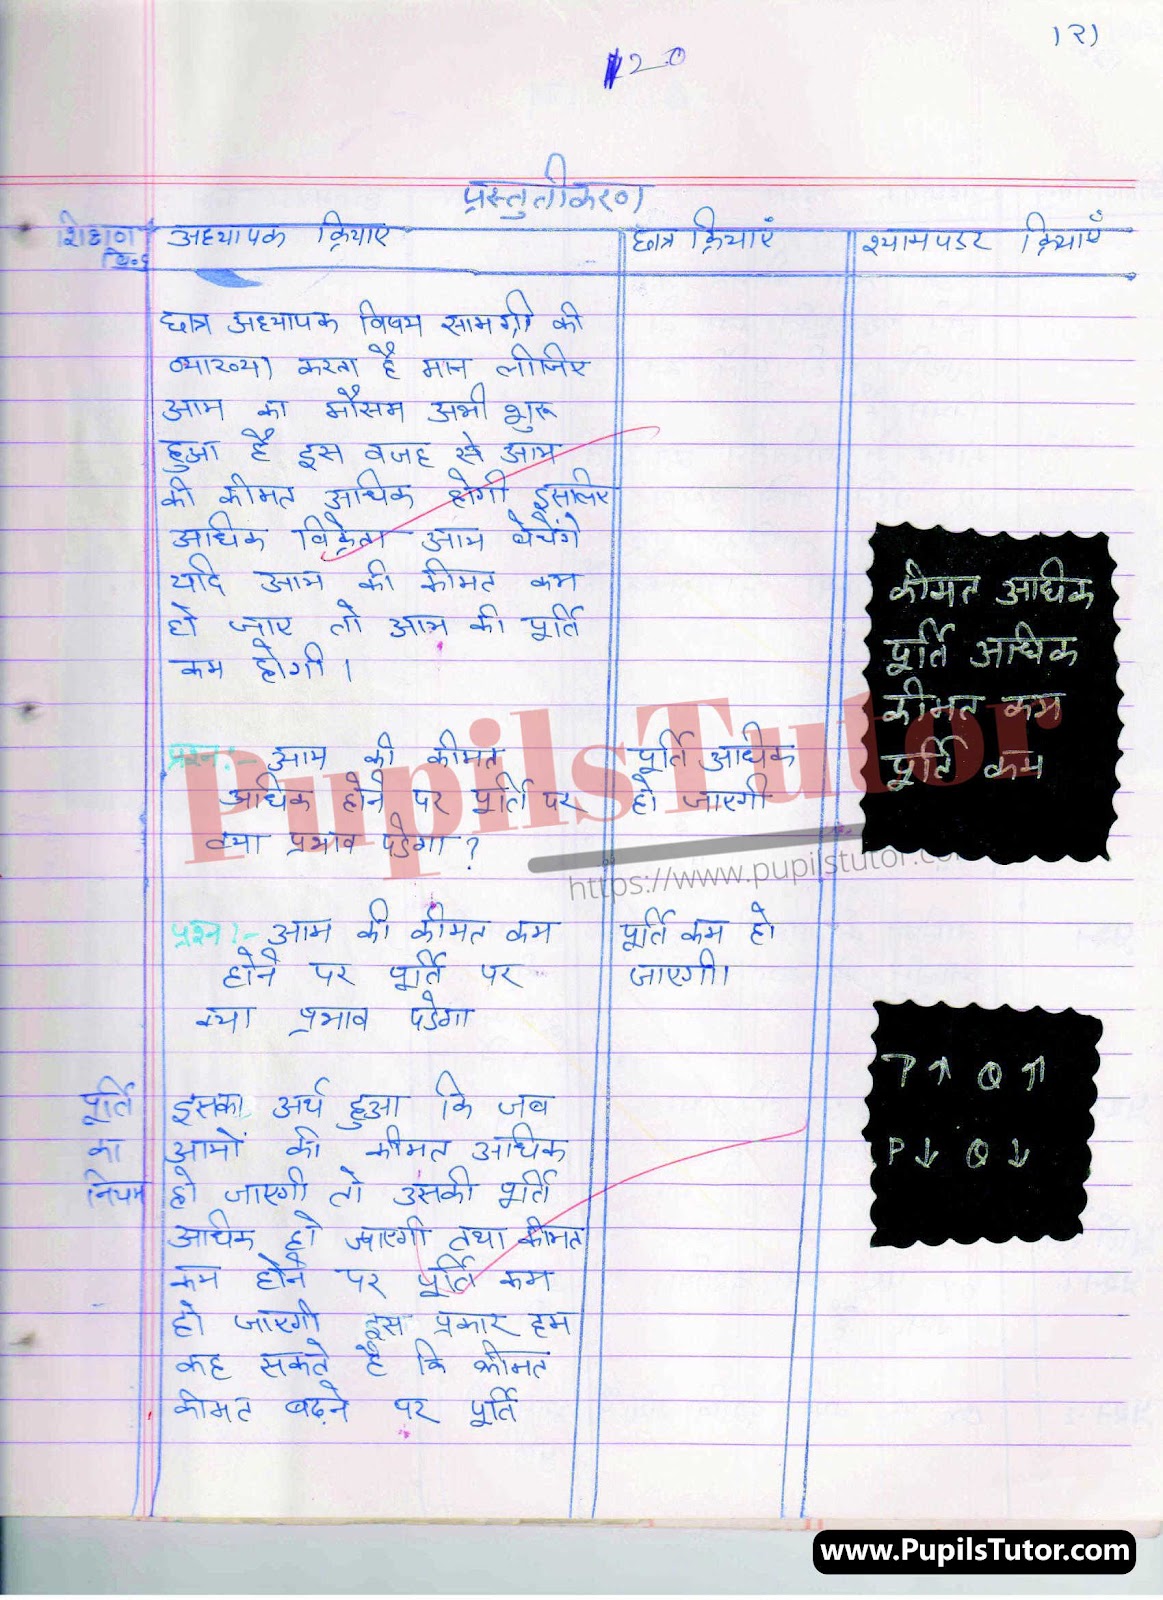 121
120
प्रस्तुतीकरण
शिक्षण बि०६
अध्यापक क्रियाए
छात्र क्रियाएं
श्यामपडर क्रियाएँ
छात्र अध्यापक विषम सामग्री की
व्याख्या करता है मान लीजिए
आम का मौसम अभी शुरू
हुआ है इस वजह से आम
की कीमत अधिक होगी इसलिए
अधिक विक्रेता आम बेचेंगे
यदि आम की कीमत कम
हो जाए तो आम की पूर्ति
कम होगी।
कीमत अधिक
पूर्ति अधिक
कीमत कम
पूर्ति कम
प्रश्न:- आम की कीमत
अधिक होने पर पूर्ति पर
क्या प्रभाव पडेगा?
पूर्ति अधिक
हो जाएगी
PupilsTutor
https://www.pupilstutor.com
प्रश्न:- आम की कीमत कम
होने पर पूर्ति पर
क्या प्रभाव पडेगा
पूर्ति कम हो
जाएगी।
P↑ Q↑
P↓ Q↓
पूर्ति
का
नियम
इसका अर्थ हुआ कि जब
आमों की कीमत अधिक
हो जाएगी तो उसकी पूर्ति
अधिक हो जाएगी तथा कीमत
कम होने पर पूर्ति कम
हो जाएगी इस प्रकार हम
कह सकते है कि कीमत
कीमत बढ़ने पर पूर्ति
www.PupilsTutor.com